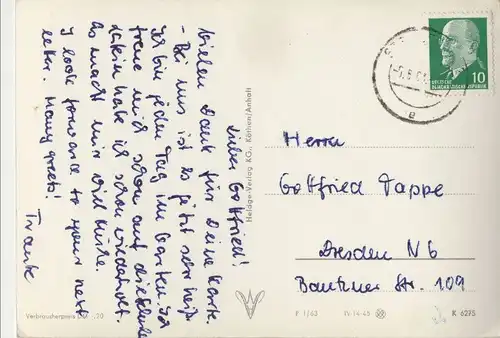 Lieber Gottfried!
Vielen Dank für Deine Karte.
- Bei uns ist es jetzt sehr heiß.
Ich bin jeden Tag im Garten. Ich
freue mich schon auf die Schule
Latein habe ich schon wiederholt.
Es macht mir viel Mühe.
I look forward to your next
letter. Many greets!
Frank
Verbraucherpreis DM -,20
Heldge-Verlag KG., Köthen/Anhalt
DEUTSCHE
DEMOKRATISCHE REPUBLIK
10
e
Herrn
Gottfried Tappe
Dresden N 6
Bautzner Str. 109
P 1/63 IV-14-45 K 6275